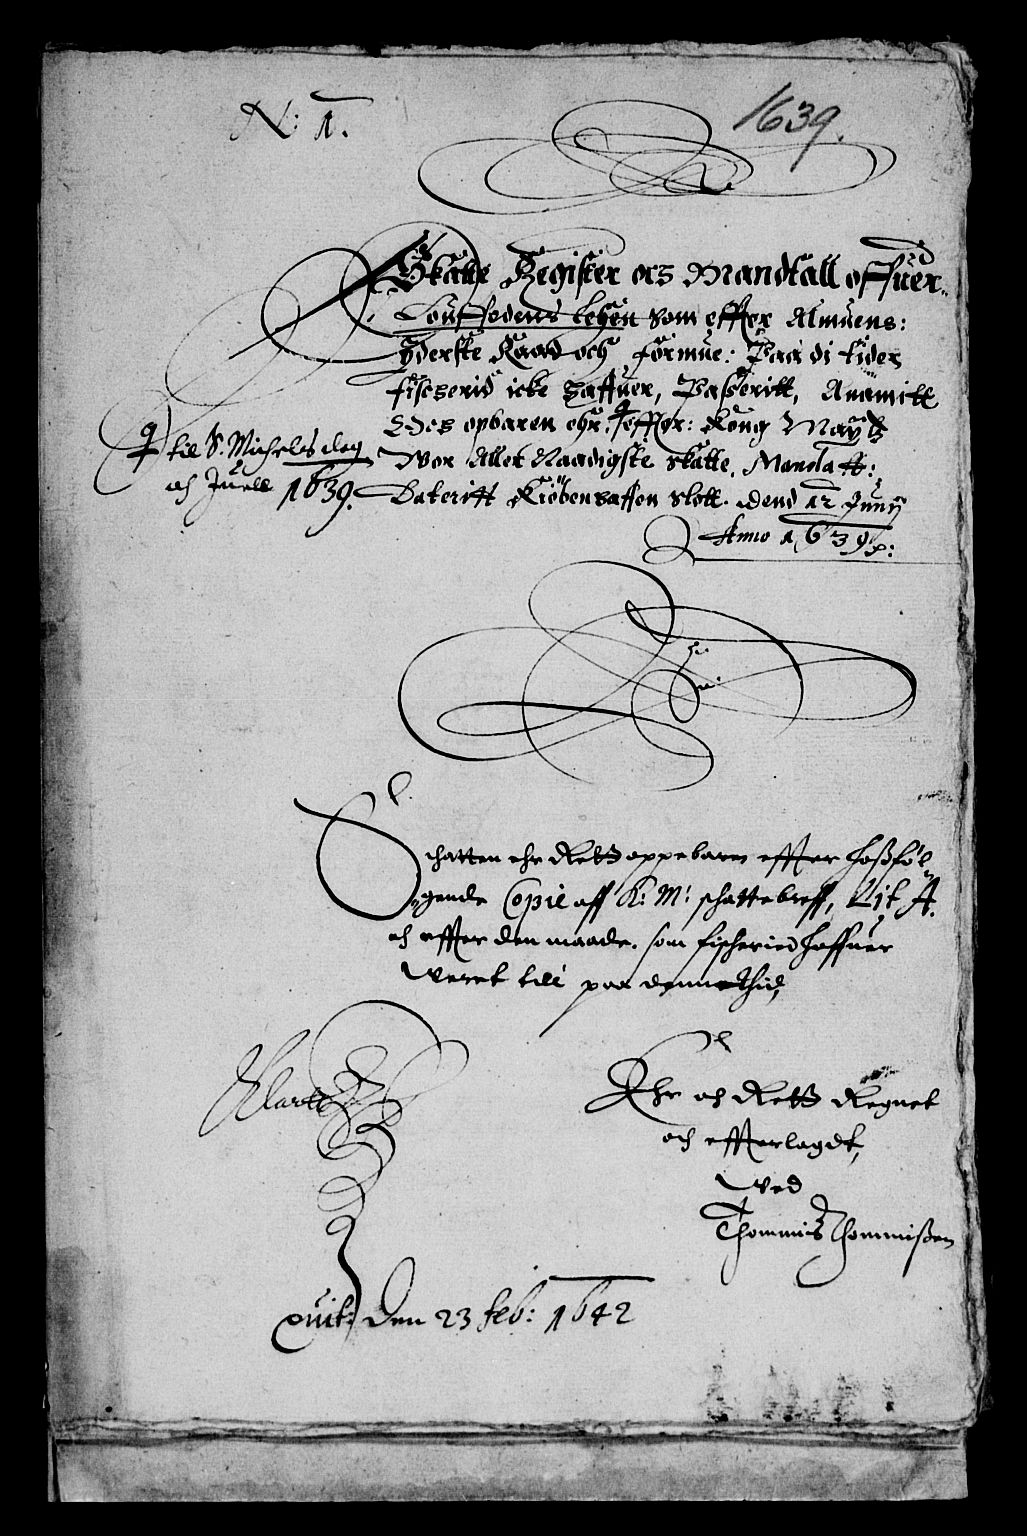 N: 1.
1639.
Skatte Register och Mandtall offuer
Louffodens lehen som effter Almuens:
Yderste Raad och formue: Paa di tider
fischerid icke haffuer, Passeritt, Anamitt
och opbaren ehr. effter: Kong May:tz
Wor Aller Naadigste skatte. Mandatt:
Dateritt Kiøbenhaffen slott. dend 12 Junij
Anno 1639 p:
til S. Michels dag
och Juell 1639.
Schatten ehr Rett oppebaren effter hossføl-
gende Copie aff K: M: schattebreff, Lit A.
och effter den maade. som fischeried haffuer
weret till paa denne thid,
Klartt
Ehr och Rett Regnet
och effterlagdt,
Wed
Thommis Thommißen
quit: den 23 feb: 1642